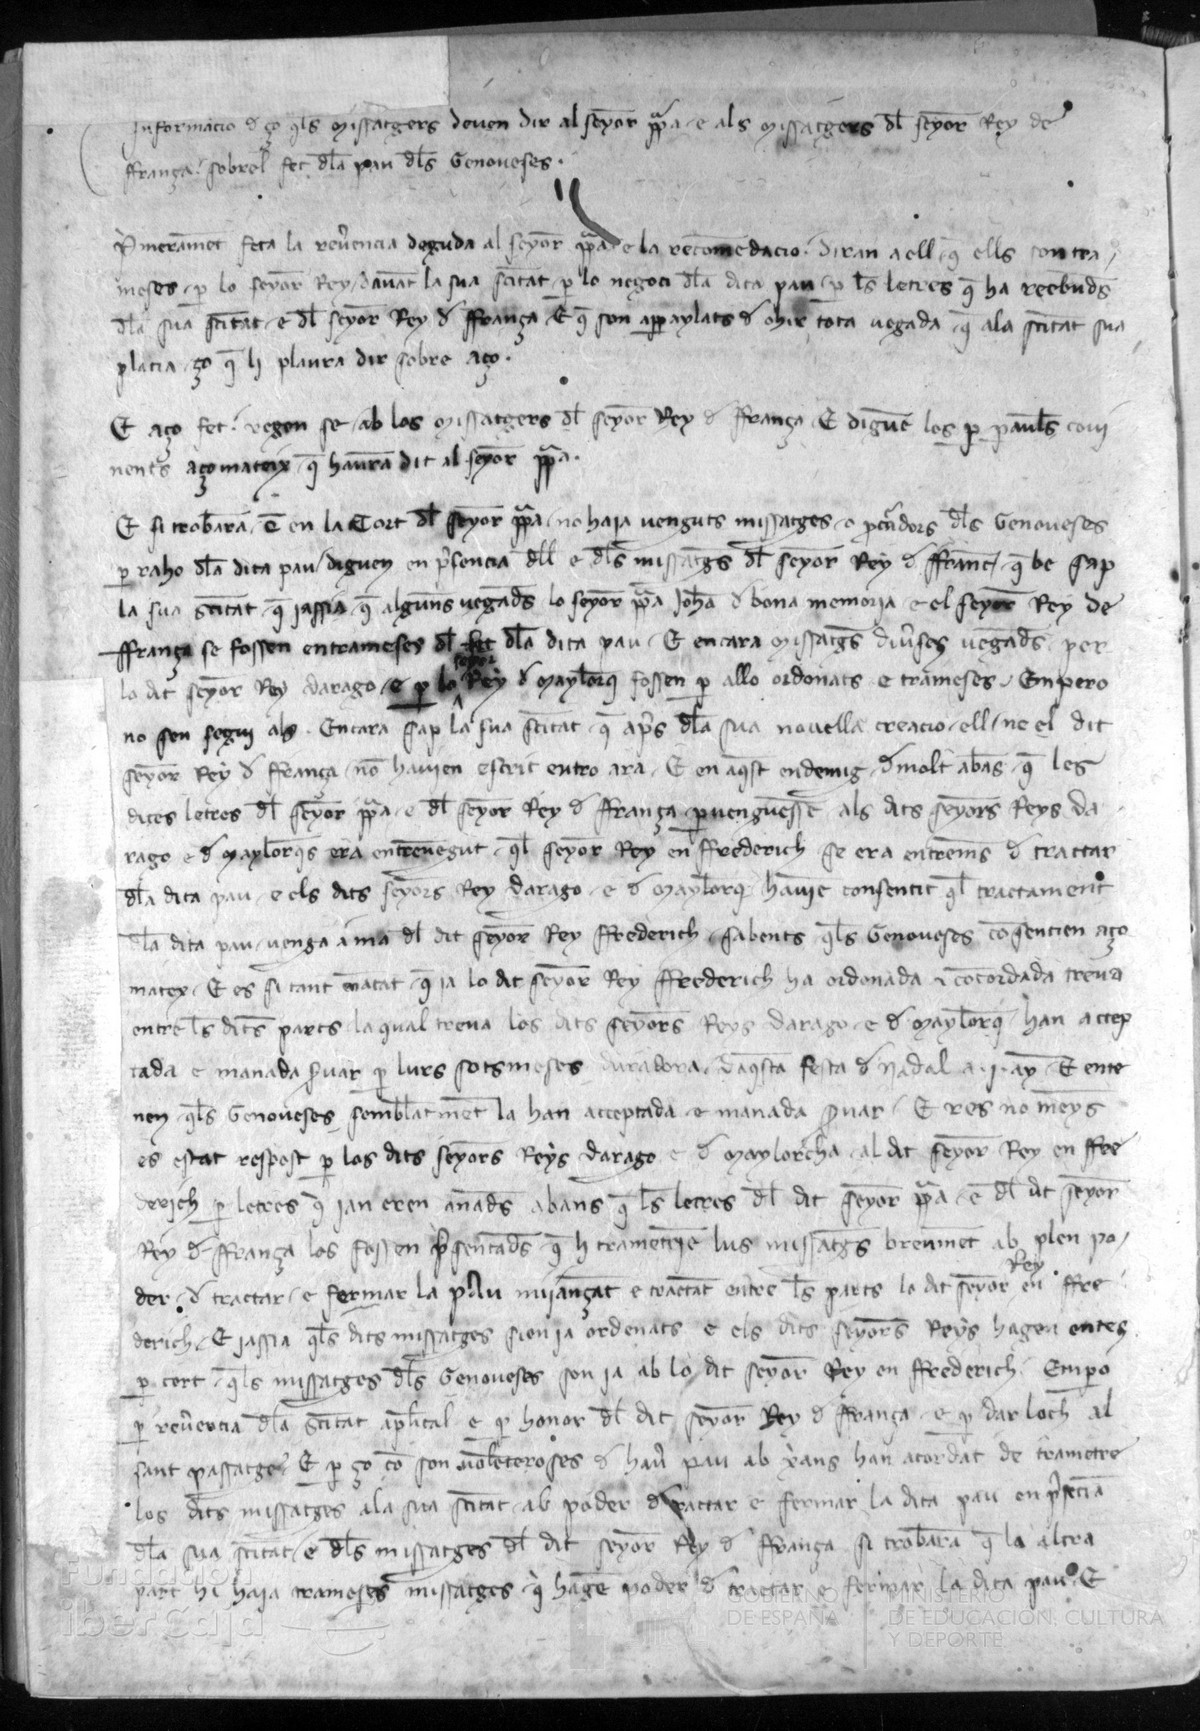 Informacio d ço q̄ls missatgers deven dir al seyor pp̄a e als missatgers dl̄ seyor Rey de
ffrança sobrel fet dl̄a pau dl̄s Genoveses.
P̄merament feta la rev̄encia deguda al seyor pp̄a e la recomēdacio. diran a ell q̄ ells son tra
meses p̱ lo seyor Rey davāt la sua sc̄itat p̱ lo negoci dl̄a dita pau p̱ l̄s letres q̄ ha reebud̄s
dl̄a sua sc̄itat e dl̄ seyor Rey d ffrança E q̄ son appaylats d ohir tota vegada q̄ ala sc̄itat sua
placia ço q̄ li plaura dir sobre aço.
E aço fet. vegen se ab los missatgers dl̄ seyor Rey d ffrança E diguē los p̱ paraul̄s covi
nents açomateix q̄ haurā dit al seyor pp̄a.
E si trobarā q̄ en la Cort dl̄ seyor pp̄a no haja venguts missatges o pc̄urdors dl̄s Genoveses
p̱ raho dl̄a dita pau diguen en p̄sencia dell e dl̄s missatgs̄ dl̄ seyor Rey d ffranc̄ q̄ be sap
la sua sc̄itat q̄ jassia q̄ alguns vegad̄s lo seyor pp̄a Joh̄a d bona memoria e el seyor Rey de
ffrança se fossen entrameses dl̄ fet dl̄a dita pau E encara missatgs̄ div̄ses vegad̄s per
lo dit seyor Rey darago e p̱ lo seyor Rey d Maylorq̄ fossen p̱ allo ordonats e trameses Empero
no sen segui als. Encara sap la sua sc̄itat q̄ ap̄s dl̄a sua novella creacio ell ne el dit
seyor Rey d ffrança no havien escrit entro ara E en aq̄st endemig d molt abās q̄ les
dites letres dl̄ seyor pp̄a e dl̄ seyor Rey d ffrança p̱venguessē als dits seyors Reys da
rago e d Maylorq̄s era entrevegut q̄l seyor Rey en ffrederich se era entrem̄s d tractar
dl̄a dita pau e els dits seyors Rey darago e d Maylorq̄ havie consentit q̄l tractament
dl̄a dita pau venga a mā dl̄ dit seyor Rey ffrederich sabents q̄ls Genoveses cōsentien aço
matex E es si tant enātat q̄ ja lo dit seyor Rey ffrederich ha ordonada ⁊ cōcordada treva
entre l̄s dits parts la qual treva los dits seyors Reys darago e d Maylorq̄ han accep
tada e manada s̄var p̱ lurs sotsmeses duradora daq̄sta festa d Nadal a .j. ay E ente
nen q̄ls Genoveses semblātmēt la han acceptada e manada s̄var E res no meys
es estat respost p̱ los dits seyors Reys darago e d Maylorcha al dit seyor Rey en ffre
derich p̱ letres q̄ jan eren anad̄s abans q̄ l̄s letres dl̄ dit seyor pp̄a e dl̄ dit seyor
Rey d ffrança los fossen p̄sentad̄s q̄ li trametrie lus missatgs̄ breumēt ab plen po
der d tractar e fermar la pau mijançāt e tractāt entre l̄s parts lo dit seyor Rey en ffre
derich E jassia q̄ls dits missatges sien ja ordenats e els dits seyors Reys hagen entes
p̱ cert q̄ls missatges dl̄s Genoveses son ja ab lo dit seyor Rey en ffrederich Emp̱o
p̱ rev̄encia dl̄a sc̄itat apl̄ical e p̱ honor dl̄ dit seyor Rey d ffrança e p̱ dar loch al
sant passatge E p̱ ço cō son volēteroses d hav̄ pau ab x̄ans han acordat de trametre
los dits missatges ala sua sc̄itat ab poder d tractar e fermar la dita pau en p̄secia
dl̄a sua sc̄itat e dl̄s missatges dl̄ dit seyor Rey d ffrança si trobarā q̄ la altra
part hi haja trameses missatges q̄ hagē poder d tractar e fermar la dita pau E
Fundación
iberCaja
GOBIERNO
DE ESPAÑA
MINISTERIO
DE EDUCACIÓN, CULTURA
Y DEPORTE